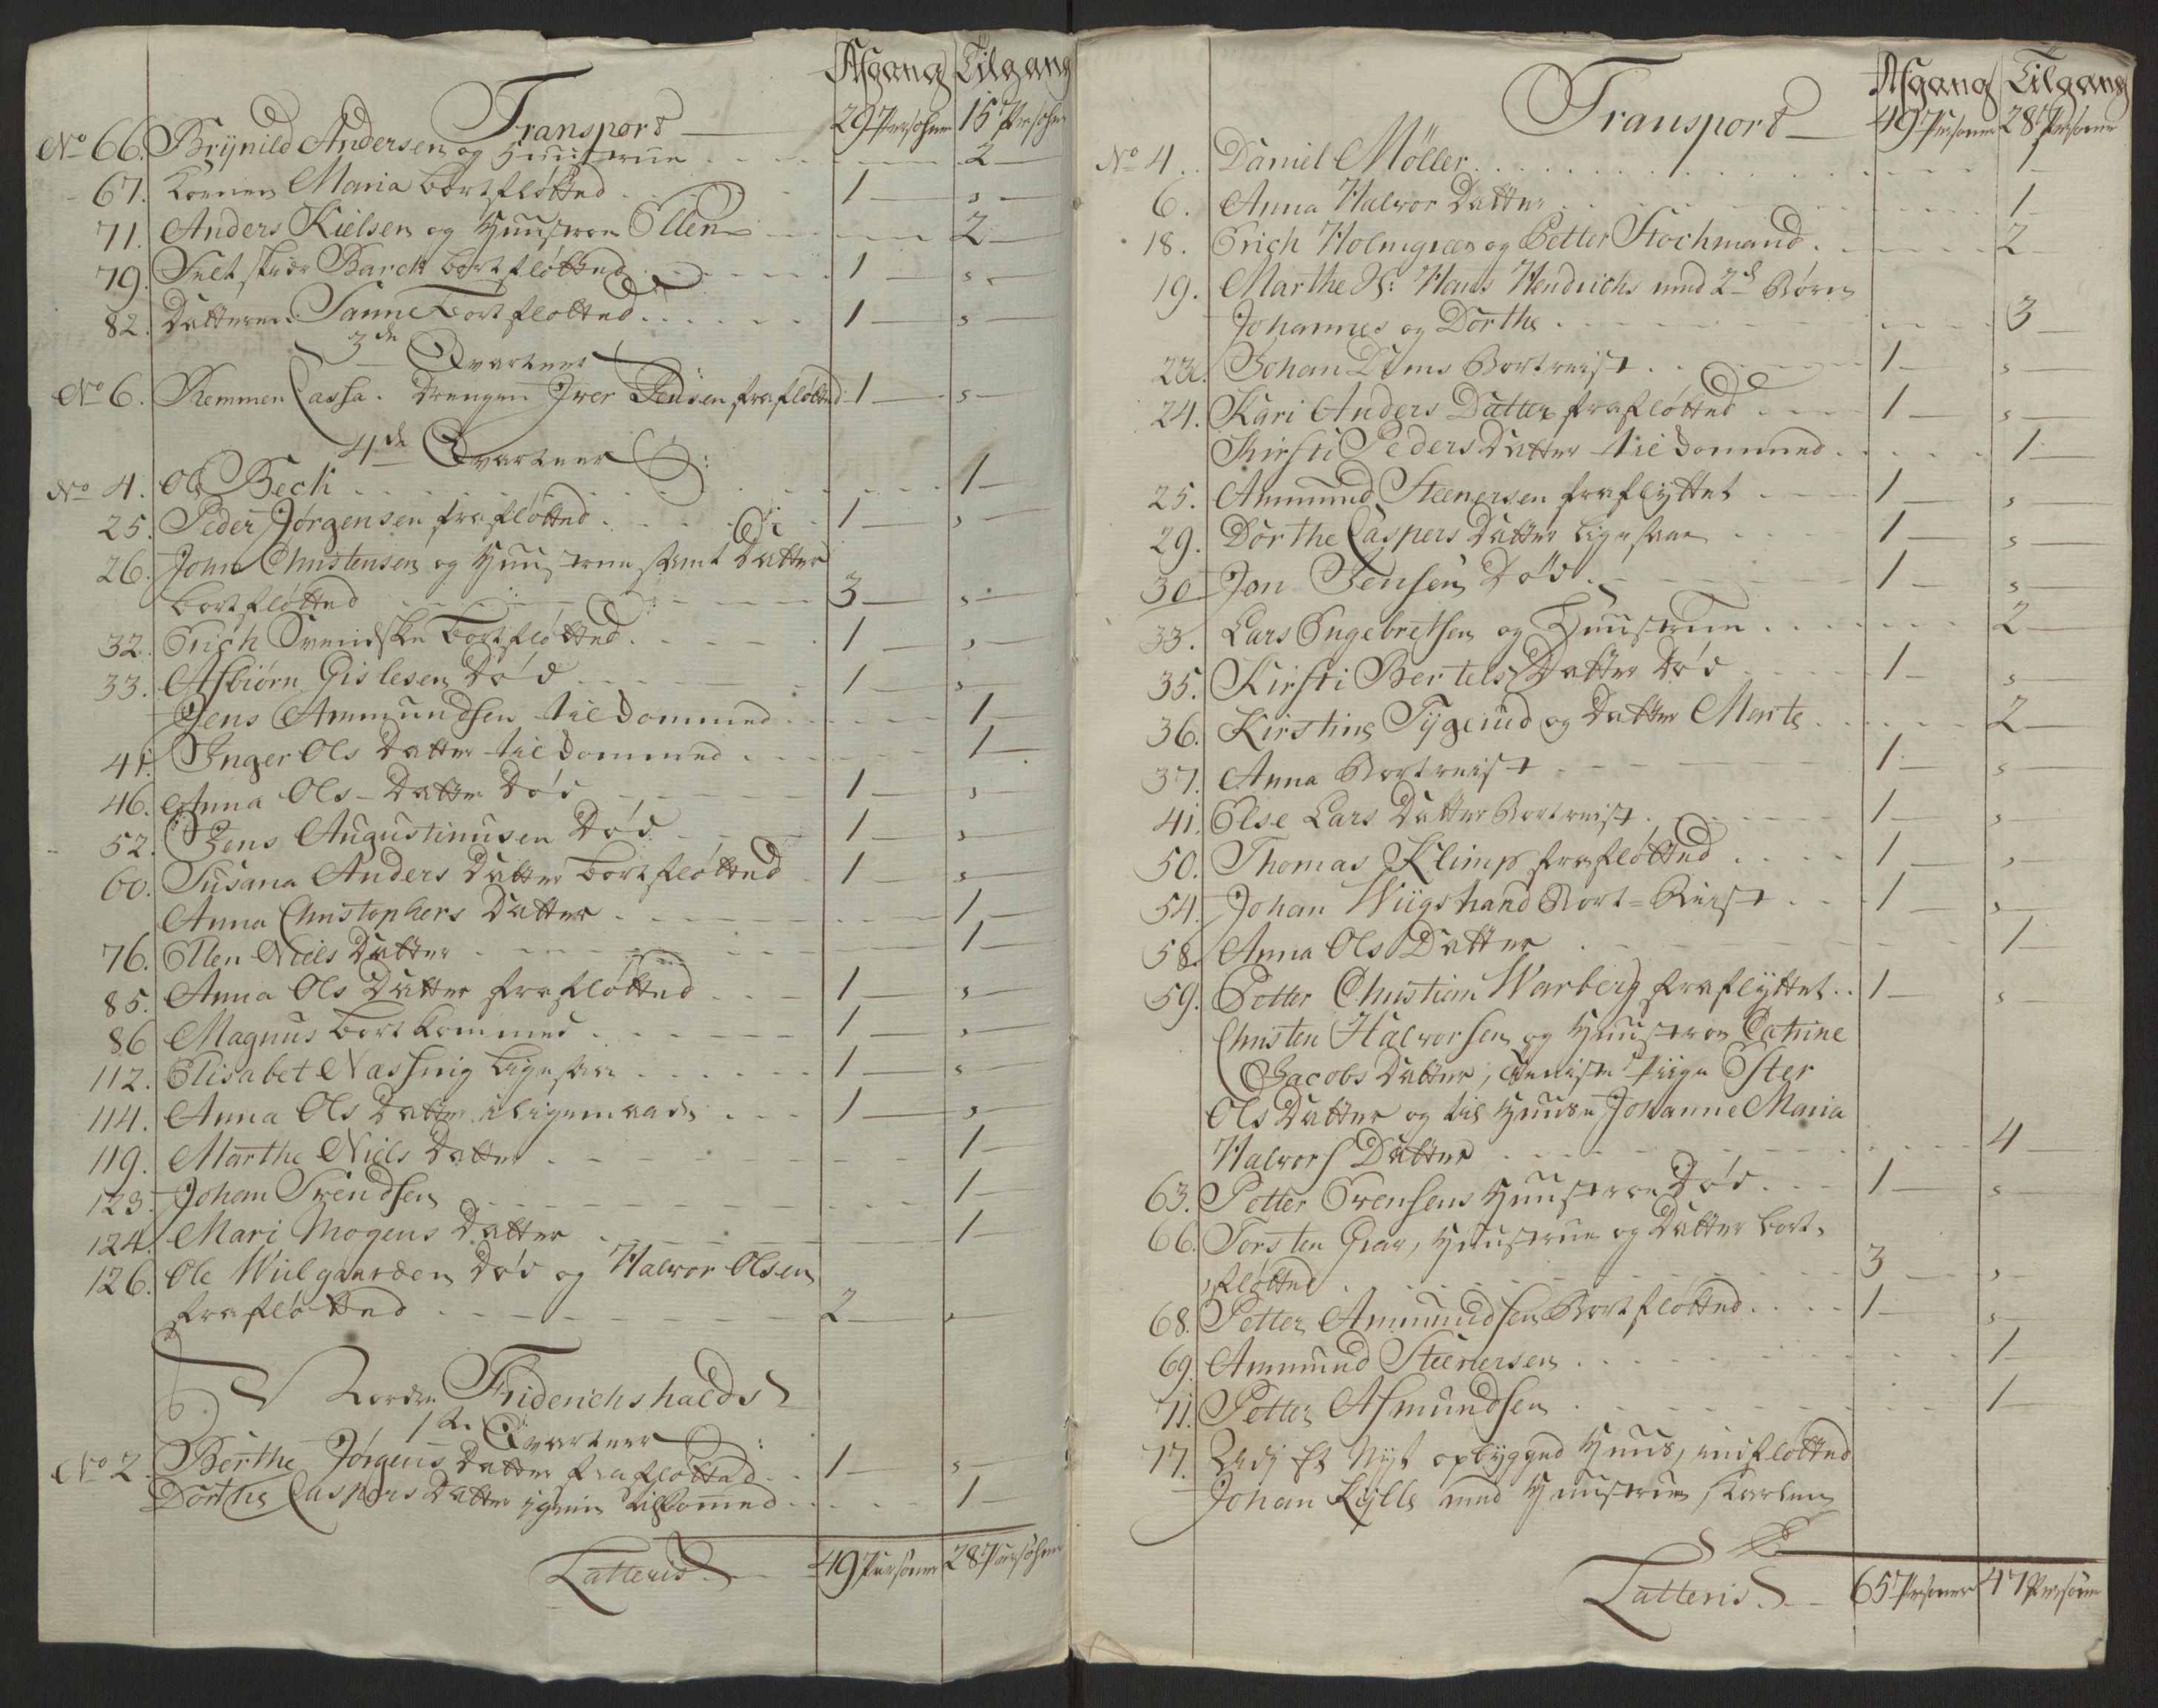 Afgang Tilgang
Transport — 29 Persohner 15 Persohner
No 66. Brynild Andersen og Huustrue . . . 2 —
67. Konen Maria bortfløtted . . . 1 — s —
71. Anders Kielsen og Huustroe Ellen . . . 2 —
79. Feltskiær Barch bortfløtted . . . 1 — s —
82. Datteren Sanne bortfløtted . . . 1 — s —
3de Qvarteer
No 6. Remmer Cassa. Drengen Iver Jensen frafløtted 1 — s —
4de Qvarteer
No 4. Ole Bech . . . 1 —
25. Peder Jørgensen frafløtted . . . 1 — s —
26. John Christensen og Huustrue samt Datter
bortfløtted . . . 3 — s —
32. Erich Svendske bortfløtted . . . 1 — s —
33. Asbiørn Gislesen Død . . . 1 — s —
Jens Ammundsen tilkommed . . . 1 —
41. Inger Ols Datter tilkommed . . . 1 —
46. Anna Ols Datter Død . . . 1 — s —
52. Jens Augustinusen Død . . . 1 — s —
60. Susana Anders Datter bortfløtted . 1 — s —
Anna Christophers Datter . . . 1 —
76. Ellen Niels Datter . . . 1 —
85. Anna Ols Datter frafløtted . . . 1 — s —
86 Magnus bortkommed . . . 1 — s —
112. Elisabet Nassnig ligesaa . . . 1 — s —
114. Anna Ols Datter i ligemaade . . . 1 — s —
119. Marthe Niels Datter . . . 1 —
123. Johan Svendsen . . . 1 —
124. Mari Mogens Datter . . . 1 —
126. Ole Wiilgaarden Død og Halvor Olsen
frafløtted . . . 2 — s —
Nordre Friderichshalds
1te Qvarteer
No 2. Berthe Jørgens Datter frafløtted . . 1 — s —
Dorthe Caspers Datter igien tilkommed . . . 1 —
Latteris — 49 Personer 28 Persohner
Afgang Tilgang
Transport — 49 Personer 28 Personer
No 4. Daniel Møller . . . 1 —
6. Anna Halvor Datter . . . 1
18. Erich Holmgreen og Petter Stochmand . . . 2
19. Marthe Sl: Hans Hendrichs med 2de Børn
Johannes og Dorthe . . . 3 —
22. Johan Dims Bortreist . . . 1 — s
24. Kari Anders Datter frafløtted . . . 1 — s —
Kirsti Peders Datter tilkommed . . . 1 —
25. Ammund Steenersen fraflyttet . . . 1 — s —
29. Dorthe Caspers Datter ligesaa . . . 1 — s —
30 Jon Jensen Død . . . 1 — s —
33. Lars Ingebretsen og Huustrue . . . 2 —
35. Kirsti Bertels Datter Død . . . 1 — s —
36. Kirstine Tygerud og Datter Merte . . . 2 —
37. Anna Bortreist . . . 1 — s —
41. Else Lars Datter Bortreist . . . 1 — s —
50. Thomas Klimp frafløtted . . . 1 — s —
54. Johan Wiigstrand Bort-Reist . . . 1 — s —
58. Anna Ols Datter . . . 1 —
59. Petter Christian Warberg fraflyttet . . 1 — s —
Christen Halvorsen og Huustroe Catrine
Jacobs Datter, tieniste Piige Ester
Ols Datter og til Huuse Johanne Maria
Halvors Datter . . . 4 —
63. Petter Svensens Huustroe Død . . . 1 — s
66. Torsten Graa, Huustrue og Datter bort-
fløtted . . . 3 — s —
68. Petter Ammundsen Bortfløtted . . . 1 — s —
69. Ammund Steenersen . . . 1 —
71. Petter Asmundsen . . . 1 —
77. Udj Et Nyt opbygged Huus, indfløtted
Johan Kylle med Huustrue, Karlen
Latteris — 65 Personer 47 Personer